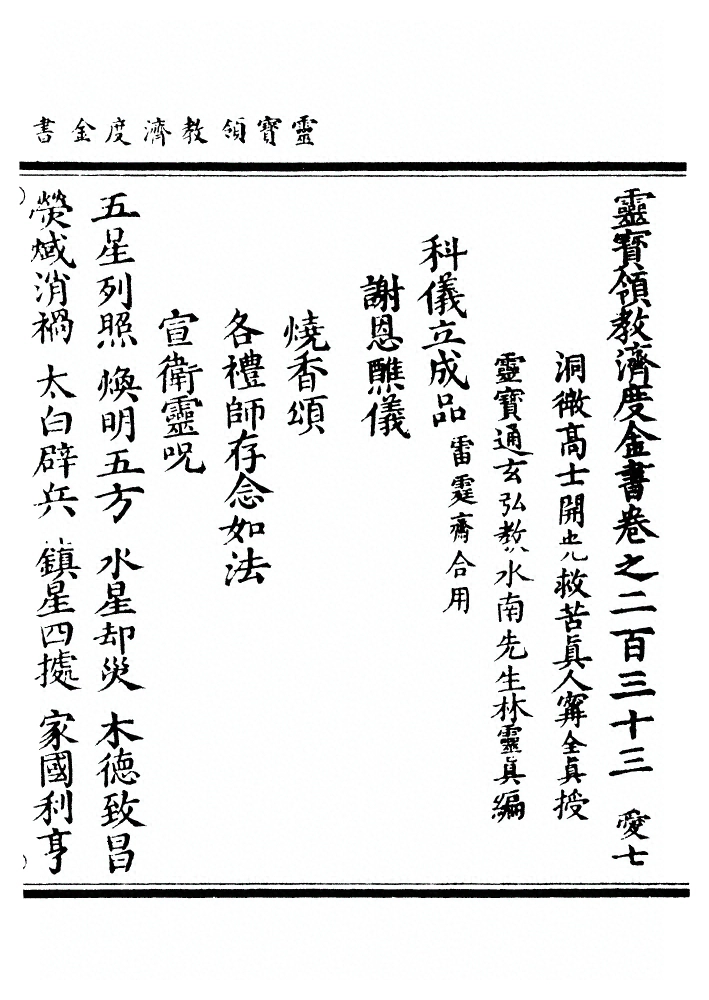 靈寶領教濟度金書
靈寶領教濟度金書卷之二百三十三 愛七
洞微高士開光救苦真人甯全真授
靈寶通玄弘教水南先生林靈真編
科儀立成品 雷霆齋合用
謝恩醮儀
燒香頌
各禮師存念如法
宣衛靈呪
五星列照 煥明五方 水星却災 木德致昌
熒惑消禍 太白辟兵 鎮星四據 家國利亨